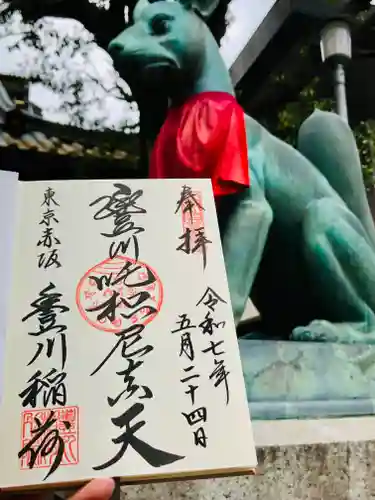 奉拝
令和七年
五月二十四日
豐川吒枳尼真天
東京赤坂
豐川稲荷